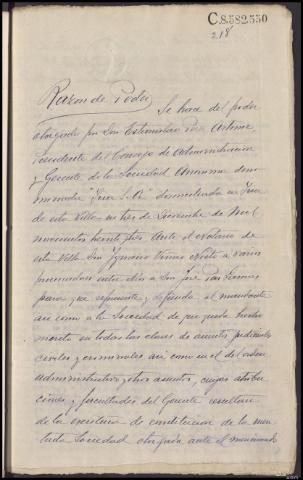 C.8.582.550
218
Razon de Poder, Se hace del poder
otorgado por Don Estanislao
Presidente del Consejo de Administración
y Gerente de la Sociedad Anonima deno-
minada S.A. domiciliada en
de esta Villa en tres de Diciembre de mil
novecientos treinta y tres ante el notario de
esta Villa Don Ignacio a varios
procuradores entre ellos a Don José
para que represente y defienda al mandante
asi como a la Sociedad de que queda hecho
merito en todas las clases de asuntos judiciales
civiles y criminales asi como en el del orden
administrativo y otros asuntos, cuyas atribu-
ciones y facultades del Gerente resultan
de la escritura de constitucion de la men-
tada Sociedad otorgada ante el mencionado